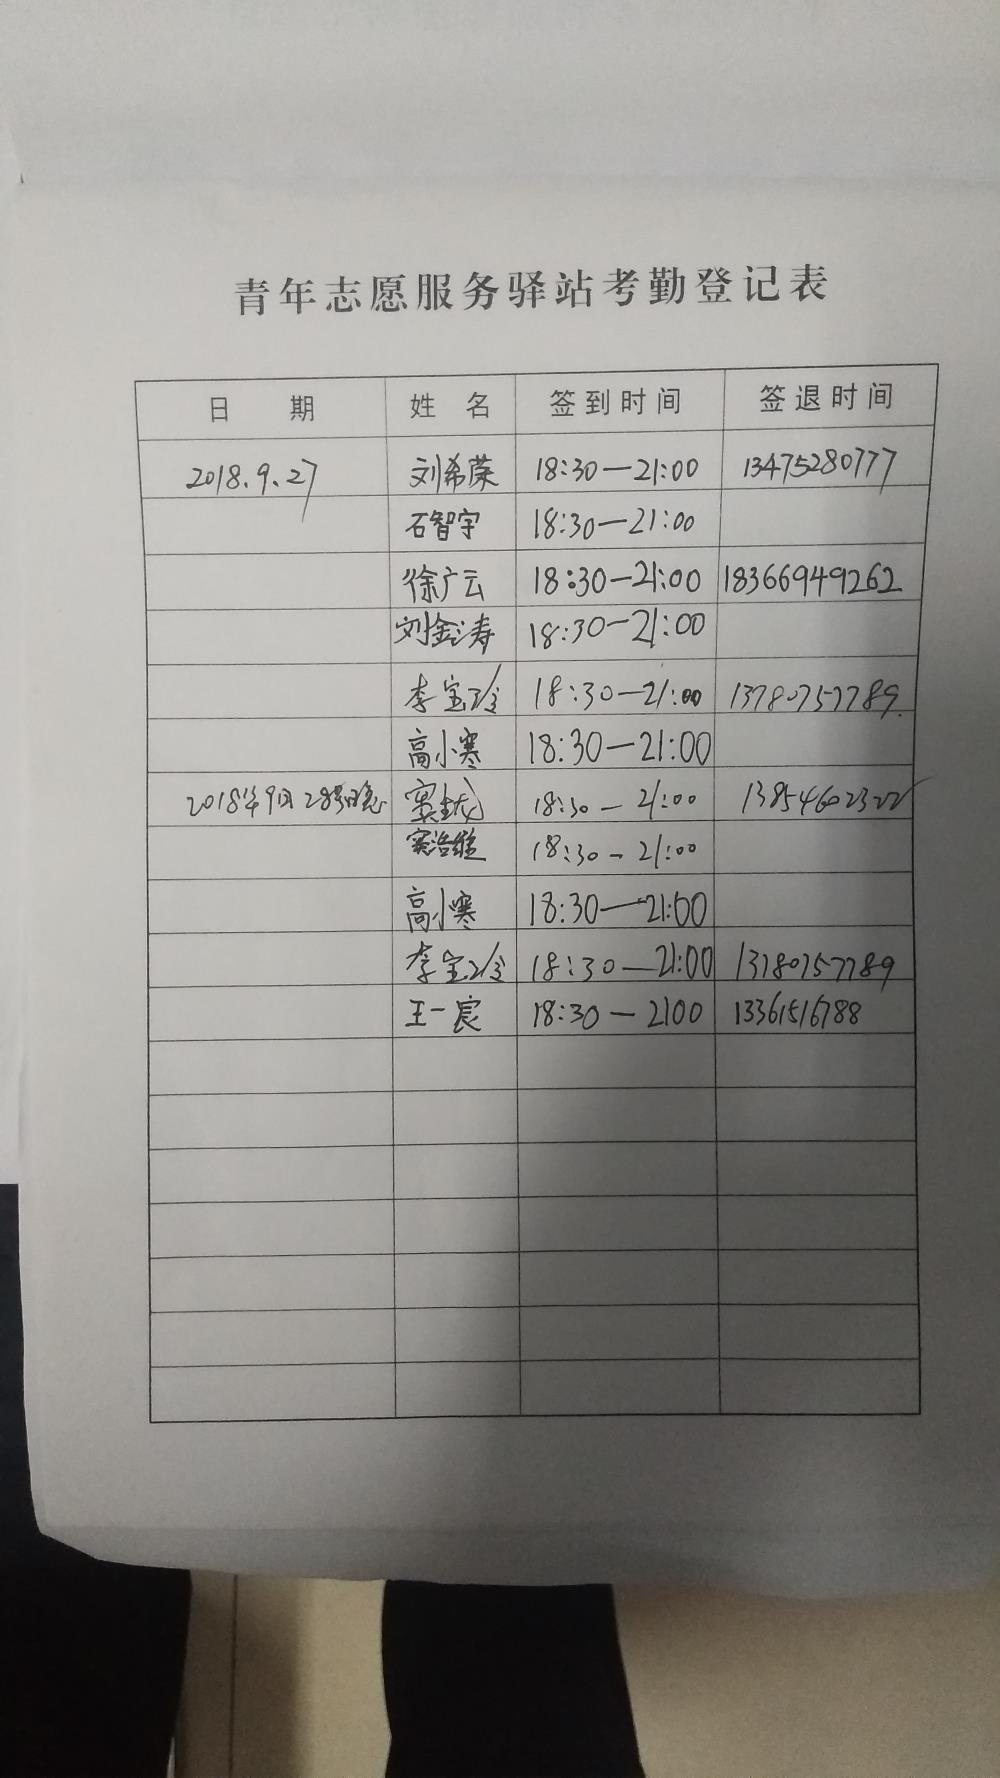 青年志愿服务驿站考勤登记表
日 期 姓 名 签到时间 签退时间
2018.9.27 刘希荣 18:30—21:00 13475280777
石智宇 18:30—21:00
徐广云 18:30—21:00 18366949262
刘金涛 18:30—21:00
李宝玲 18:30—21:00 13780757789
高小寒 18:30—21:00
2018年9月28号晚 18:30—21:00 13854602322
18:30—21:00
高小寒 18:30—21:00
李宝玲 18:30—21:00 13780757789
王一宸 18:30—2100 13361516788